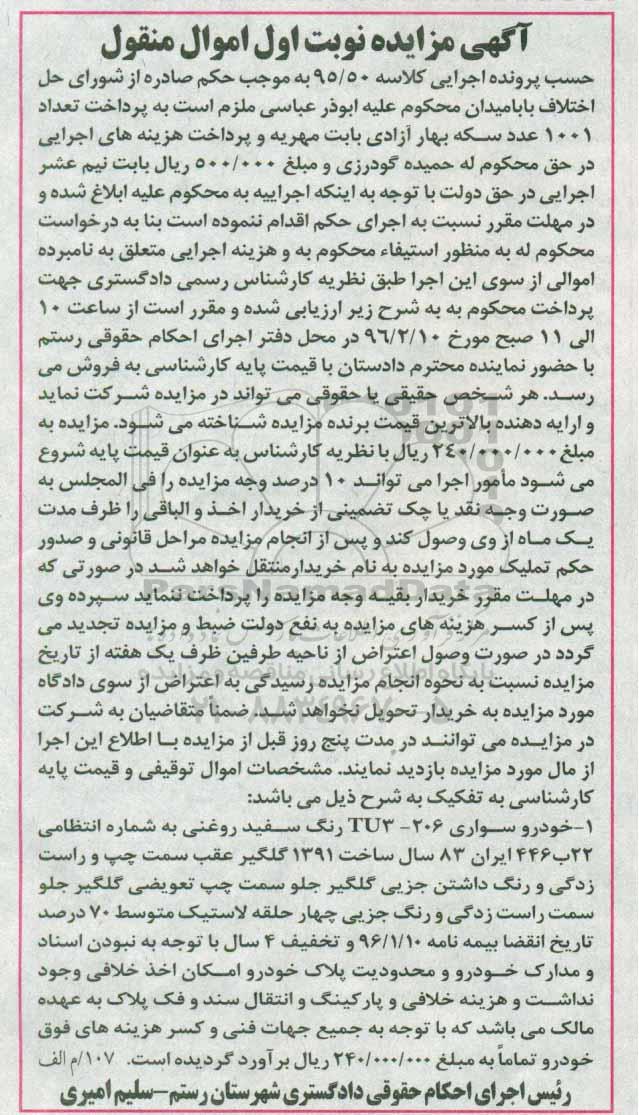 آگهی مزایده نوبت اول اموال منقول
حسب پرونده اجرایی کلاسه ۹۵/۵۰ به موجب حکم صادره از شورای حل
اختلاف بابامیدان محکوم علیه ابوذر عباسی ملزم است به پرداخت تعداد
۱۰۰۱ عدد سکه بهار آزادی بابت مهریه و پرداخت هزینه های اجرایی
در حق محکوم له حمیده گودرزی و مبلغ ۵۰۰/۰۰۰ ریال بابت نیم عشر
اجرایی در حق دولت با توجه به اینکه اجراییه به محکوم علیه ابلاغ شده و
در مهلت مقرر نسبت به اجرای حکم اقدام ننموده است بنا به درخواست
محکوم له به منظور استیفاء محکوم به و هزینه اجرایی متعلق به نامبرده
اموالی از سوی این اجرا طبق نظریه کارشناس رسمی دادگستری جهت
پرداخت محکوم به به شرح زیر ارزیابی شده و مقرر است از ساعت ۱۰
الی ۱۱ صبح مورخ ۹۶/۲/۱۰ در محل دفتر اجرای احکام حقوقی رستم
با حضور نماینده محترم دادستان با قیمت پایه کارشناسی به فروش می
رسد. هر شخص حقیقی یا حقوقی می تواند در مزایده شرکت نماید
و ارایه دهنده بالاترین قیمت برنده مزایده شناخته می شود. مزایده به
مبلغ ۲۴۰/۰۰۰/۰۰۰ ریال با نظریه کارشناس به عنوان قیمت پایه شروع
می شود مأمور اجرا می تواند ۱۰ درصد وجه مزایده را فی المجلس به
صورت وجه نقد یا چک تضمینی از خریدار اخذ و الباقی را ظرف مدت
یک ماه از وی وصول کند و پس از انجام مزایده مراحل قانونی و صدور
حکم تملیک مورد مزایده به نام خریدار منتقل خواهد شد در صورتی که
در مهلت مقرر خریدار بقیه وجه مزایده را پرداخت ننماید سپرده وی
پس از کسر هزینه های مزایده به نفع دولت ضبط و مزایده تجدید می
گردد در صورت وصول اعتراض از ناحیه طرفین ظرف یک هفته از تاریخ
مزایده نسبت به نحوه انجام مزایده رسیدگی به اعتراض از سوی دادگاه
مورد مزایده به خریدار تحویل نخواهد شد. ضمناً متقاضیان به شرکت
در مزایده می توانند در مدت پنج روز قبل از مزایده با اطلاع این اجرا
از مال مورد مزایده بازدید نمایند. مشخصات اموال توقیفی و قیمت پایه
کارشناسی به تفکیک به شرح ذیل می باشد:
۱-خودرو سواری ۲۰۶- TU۳ رنگ سفید روغنی به شماره انتظامی
۲۲ب۴۴۶ ایران ۸۳ سال ساخت ۱۳۹۱ گلگیر عقب سمت چپ و راست
زدگی و رنگ داشتن جزیی گلگیر جلو سمت چپ تعویضی گلگیر جلو
سمت راست زدگی و رنگ جزیی چهار حلقه لاستیک متوسط ۷۰ درصد
تاریخ انقضا بیمه نامه ۹۶/۱/۱۰ و تخفیف ۴ سال با توجه به نبودن اسناد
و مدارک خودرو و محدودیت پلاک خودرو امکان اخذ خلافی وجود
نداشت و هزینه خلافی و پارکینگ و انتقال سند و فک پلاک به عهده
مالک می باشد که با توجه به جمیع جهات فنی و کسر هزینه های فوق
خودرو تماماً به مبلغ ۲۴۰/۰۰۰/۰۰۰ ریال برآورد گردیده است. ۱۰۷/م الف
رئیس اجرای احکام حقوقی دادگستری شهرستان رستم-سلیم امیری
ParsNamadData
پایگاه اطلاع رسانی مناقصه و مزایده